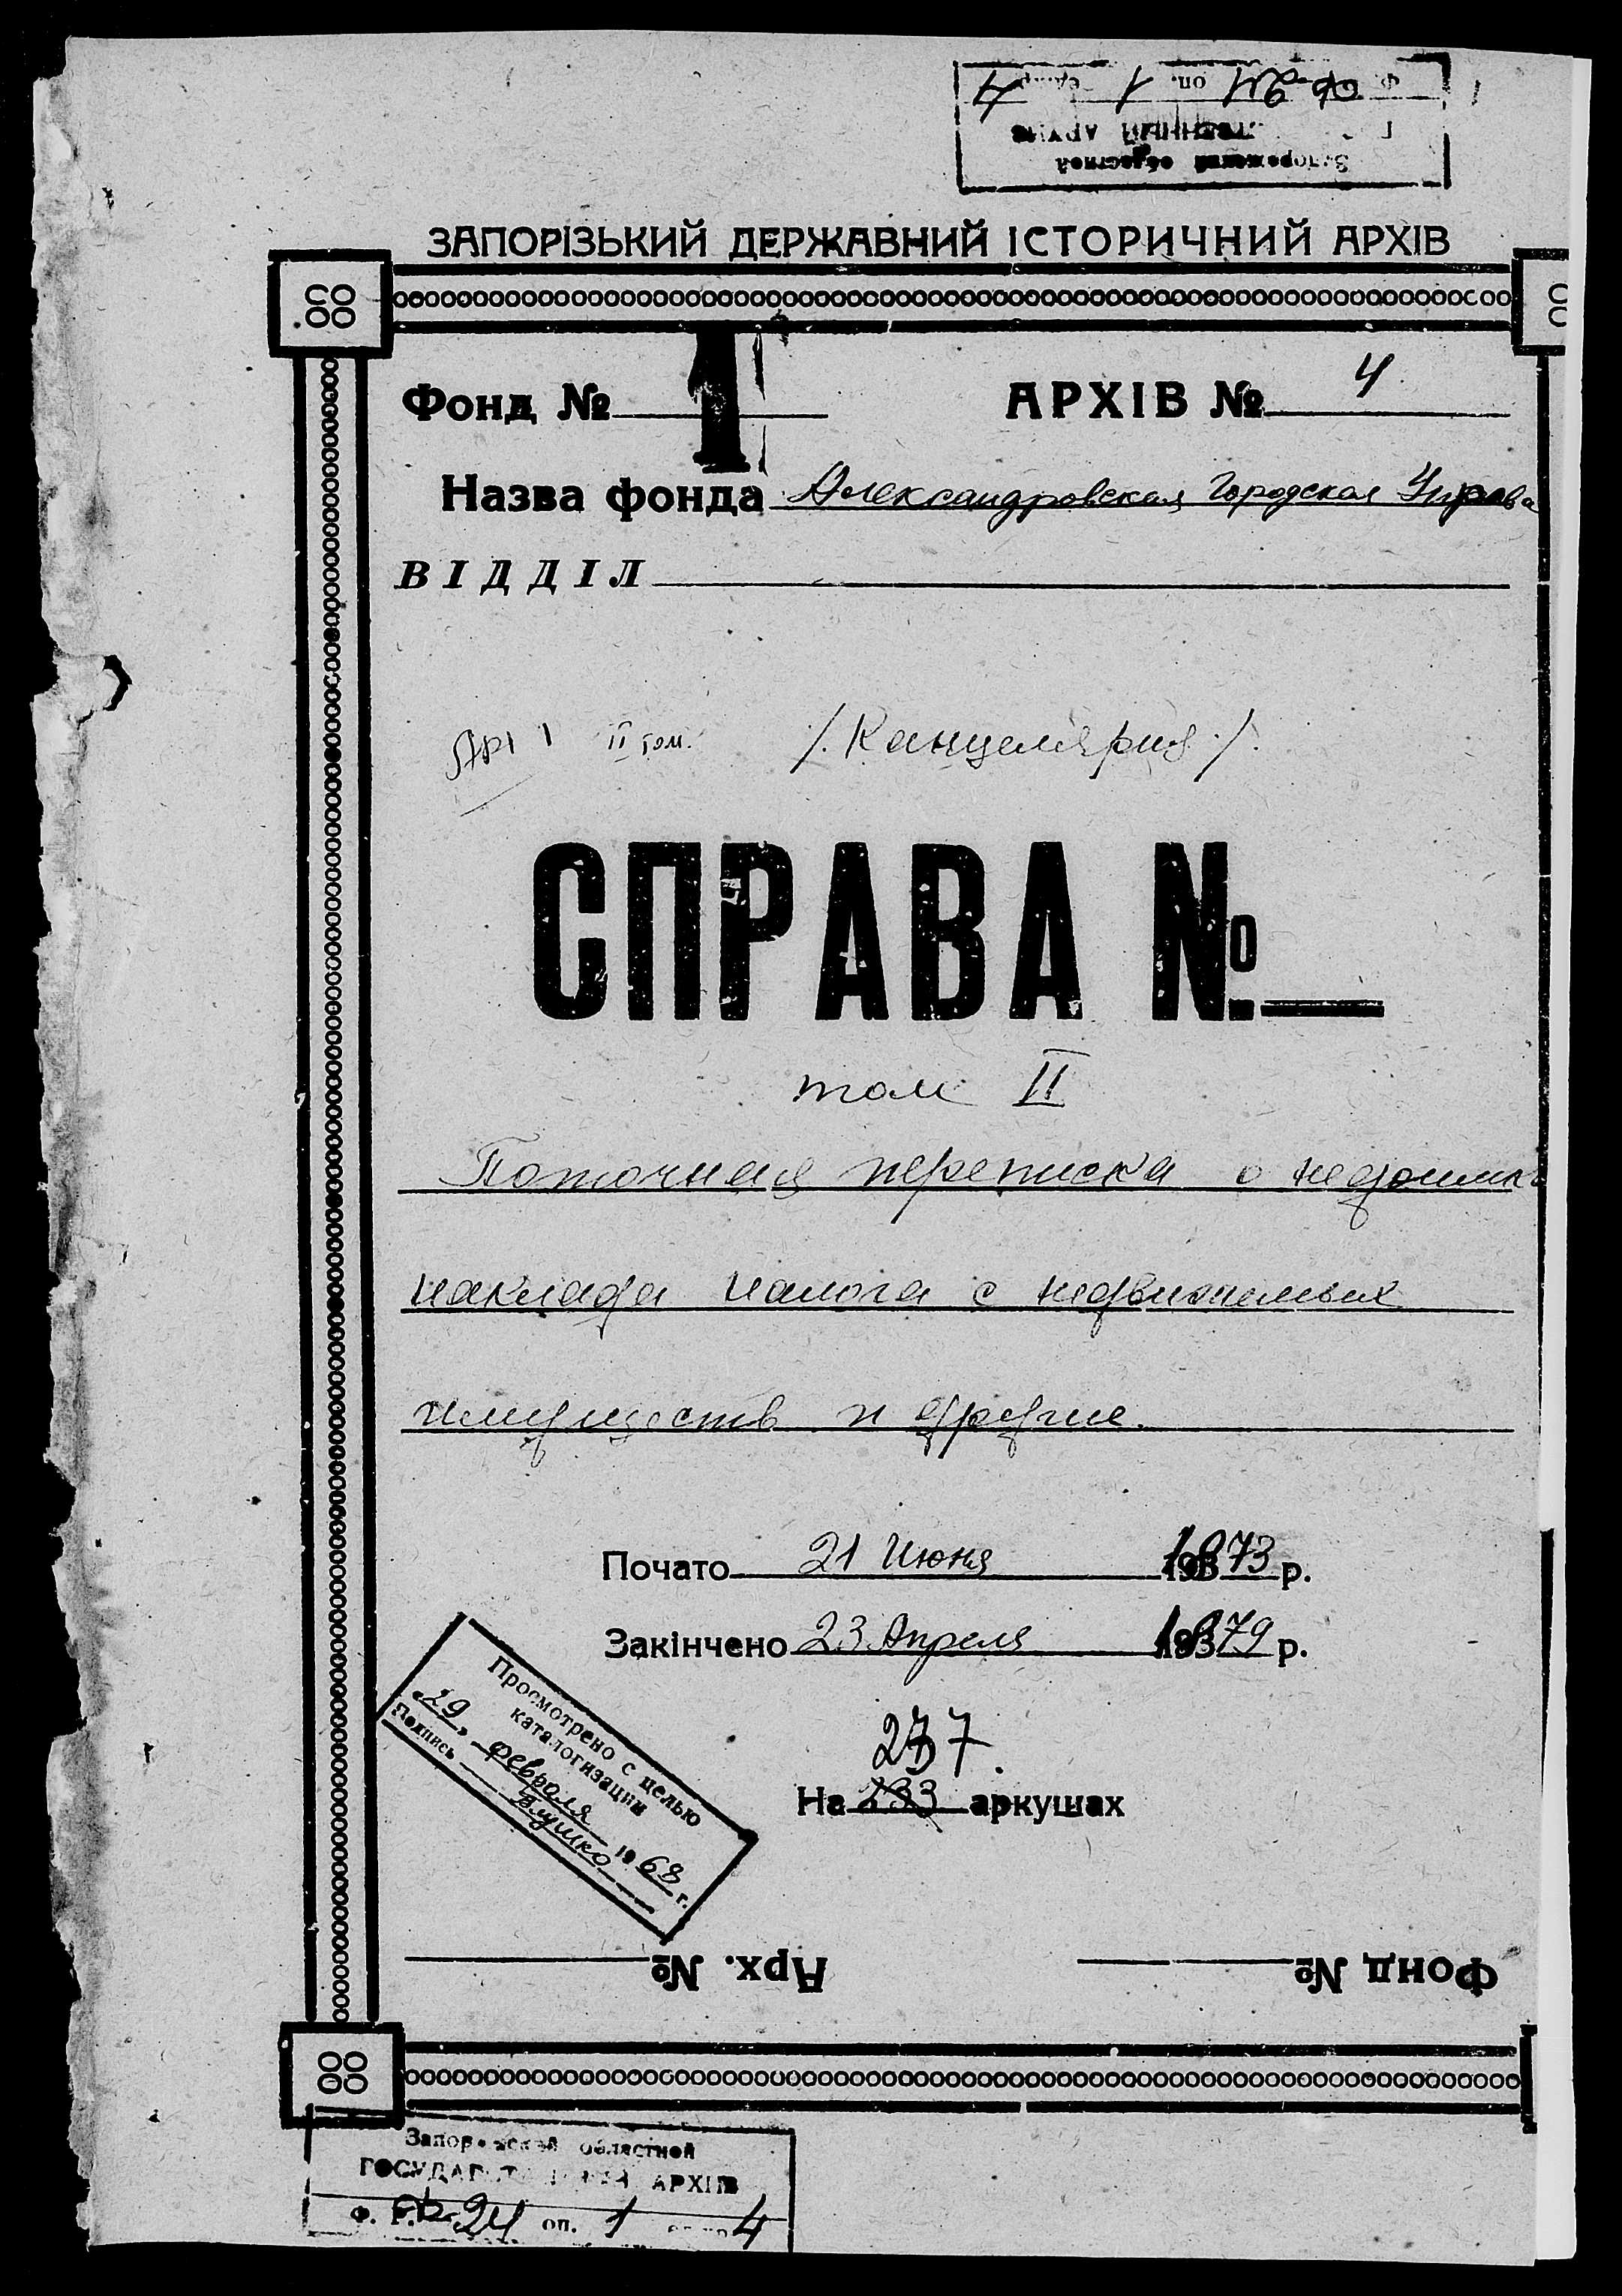 Ф. оп. 1 4
Запорожский областной
ЗАПОРІЗЬКИЙ ДЕРЖАВНИЙ ІСТОРИЧНИЙ АРХІВ
Фонд № I АРХІВ № 4
Назва фонда Александровская Городская Управа
ВІДДІЛ
II том. /. Канцелярия ./.
СПРАВА №
том II
Поточная переписка о недоимке
наклада налога с недвижимых
имуществ и другие.
Почато 21 Июня 1873 р.
Закінчено 23 Апреля 1879 р.
Просмотрено с целью
каталогизации
"29" февраля 1968 г.
Подпись
237
На 233 аркушах
Арх. № Фонд №
Запорожский областной
ГОСУДАРСТВЕННЫЙ АРХИВ
Ф. 24 оп. 1 4